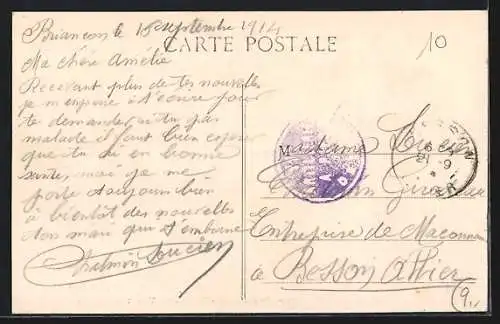 Briancon le 18 septembre 1914
CARTE POSTALE
10
Ma chère Amélie
Recevant plus de tes nouvelles
je m'enpresse à t'ecrire pour
te demander si tu es pas
malade il faut bien esperer
que tu ai en bonne
santé, moi je me
porte toujours bien
à bientôt des nouvelles
ton mari qui t'embrasse
Lucien
Madame Lucien
Entreprise de Maconnerie
à Besson Allier
9